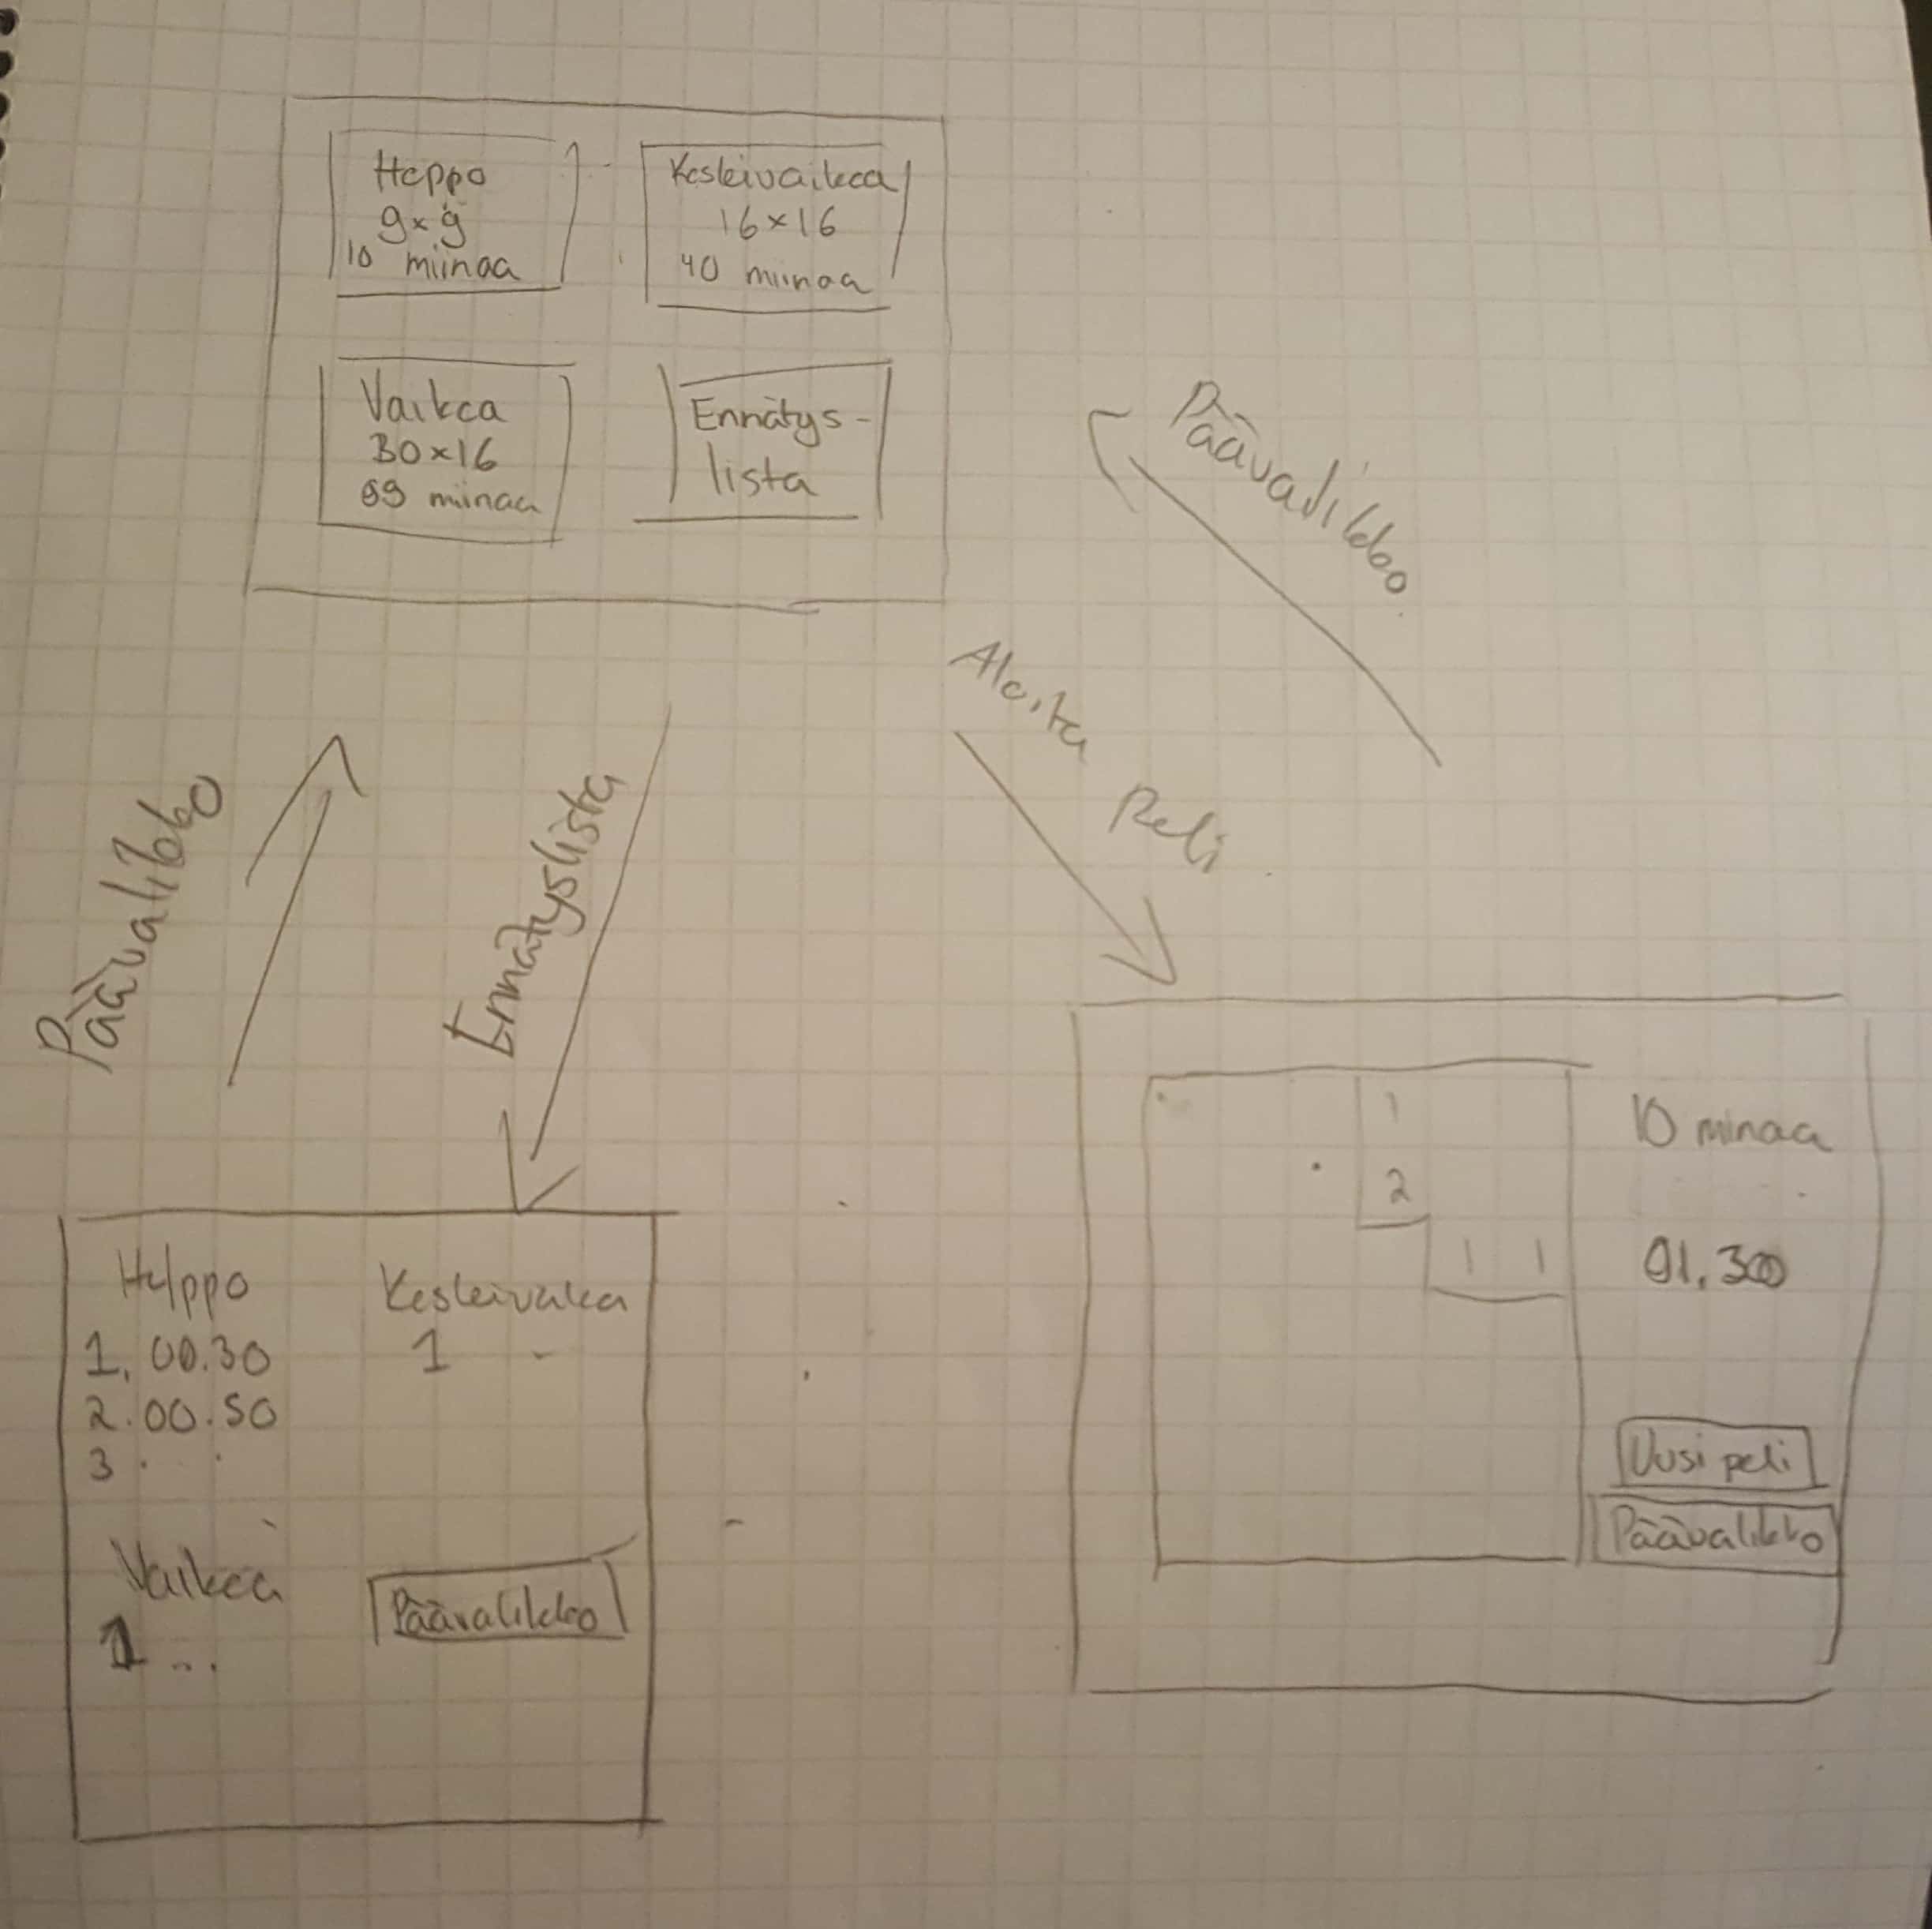 Heppo
9x9
10 miinaa
Keskivaikea
16x16
40 miinaa
Vaikea
30x16
99 miinaa
Ennätys-
lista
Päävalikko
Aloita Peli
Päävalikko
Ennätyslista
Helppo
1. 00.30
2. 00.50
3 . .
Keskivaikea
1 -
Vaikea
1 ...
Päävalikko
1
2
1 1
10 minaa
01.300
Uusi peli
Päävalikko